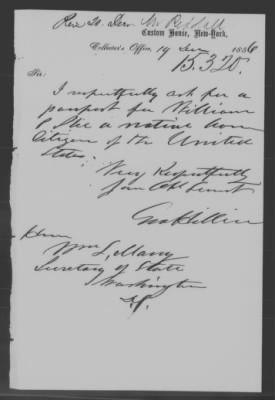 Custom House, New-York,
Collector's Office, 19 1856
B. 320.
Sir:
I respectfully ask for a
passport for William
a native born
Citizen of the United
States.
Very Respectfully
Your Obt Servt
Hon
Wm L. Marcy
Secretary of State
Washington
D.C.